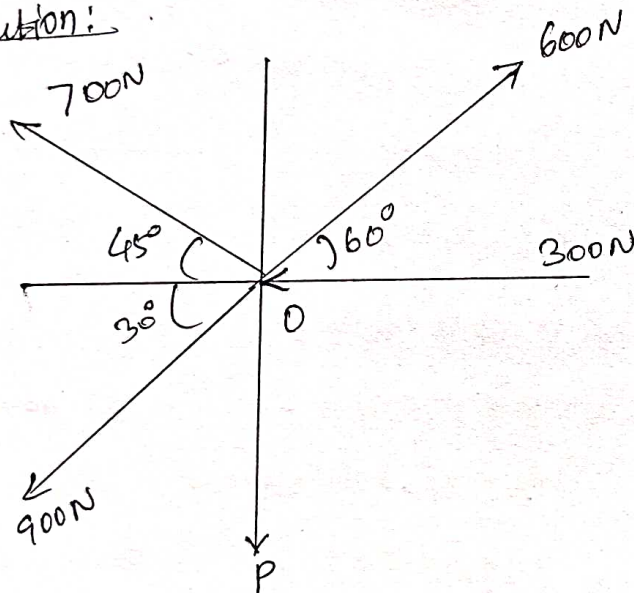 ution:
600N
700N
45°
60°
300N
30°
O
900N
P